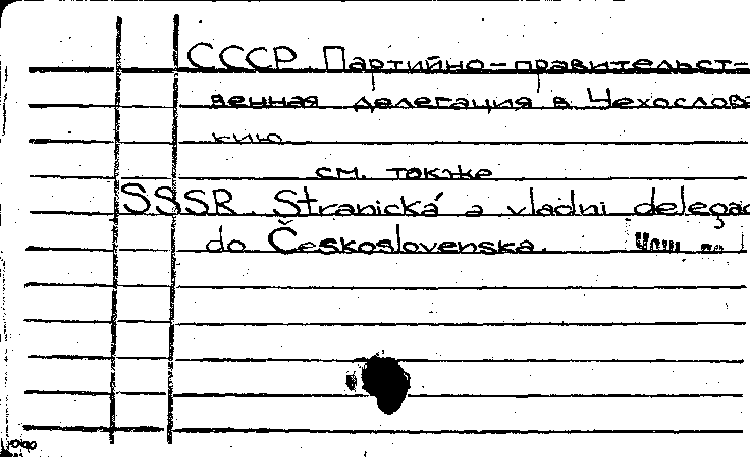 СССР. Партийно-правительст-
венная делегация в Чехослова
кию
см. также
SSSR. Stranická a vladni delegac
do Československa.